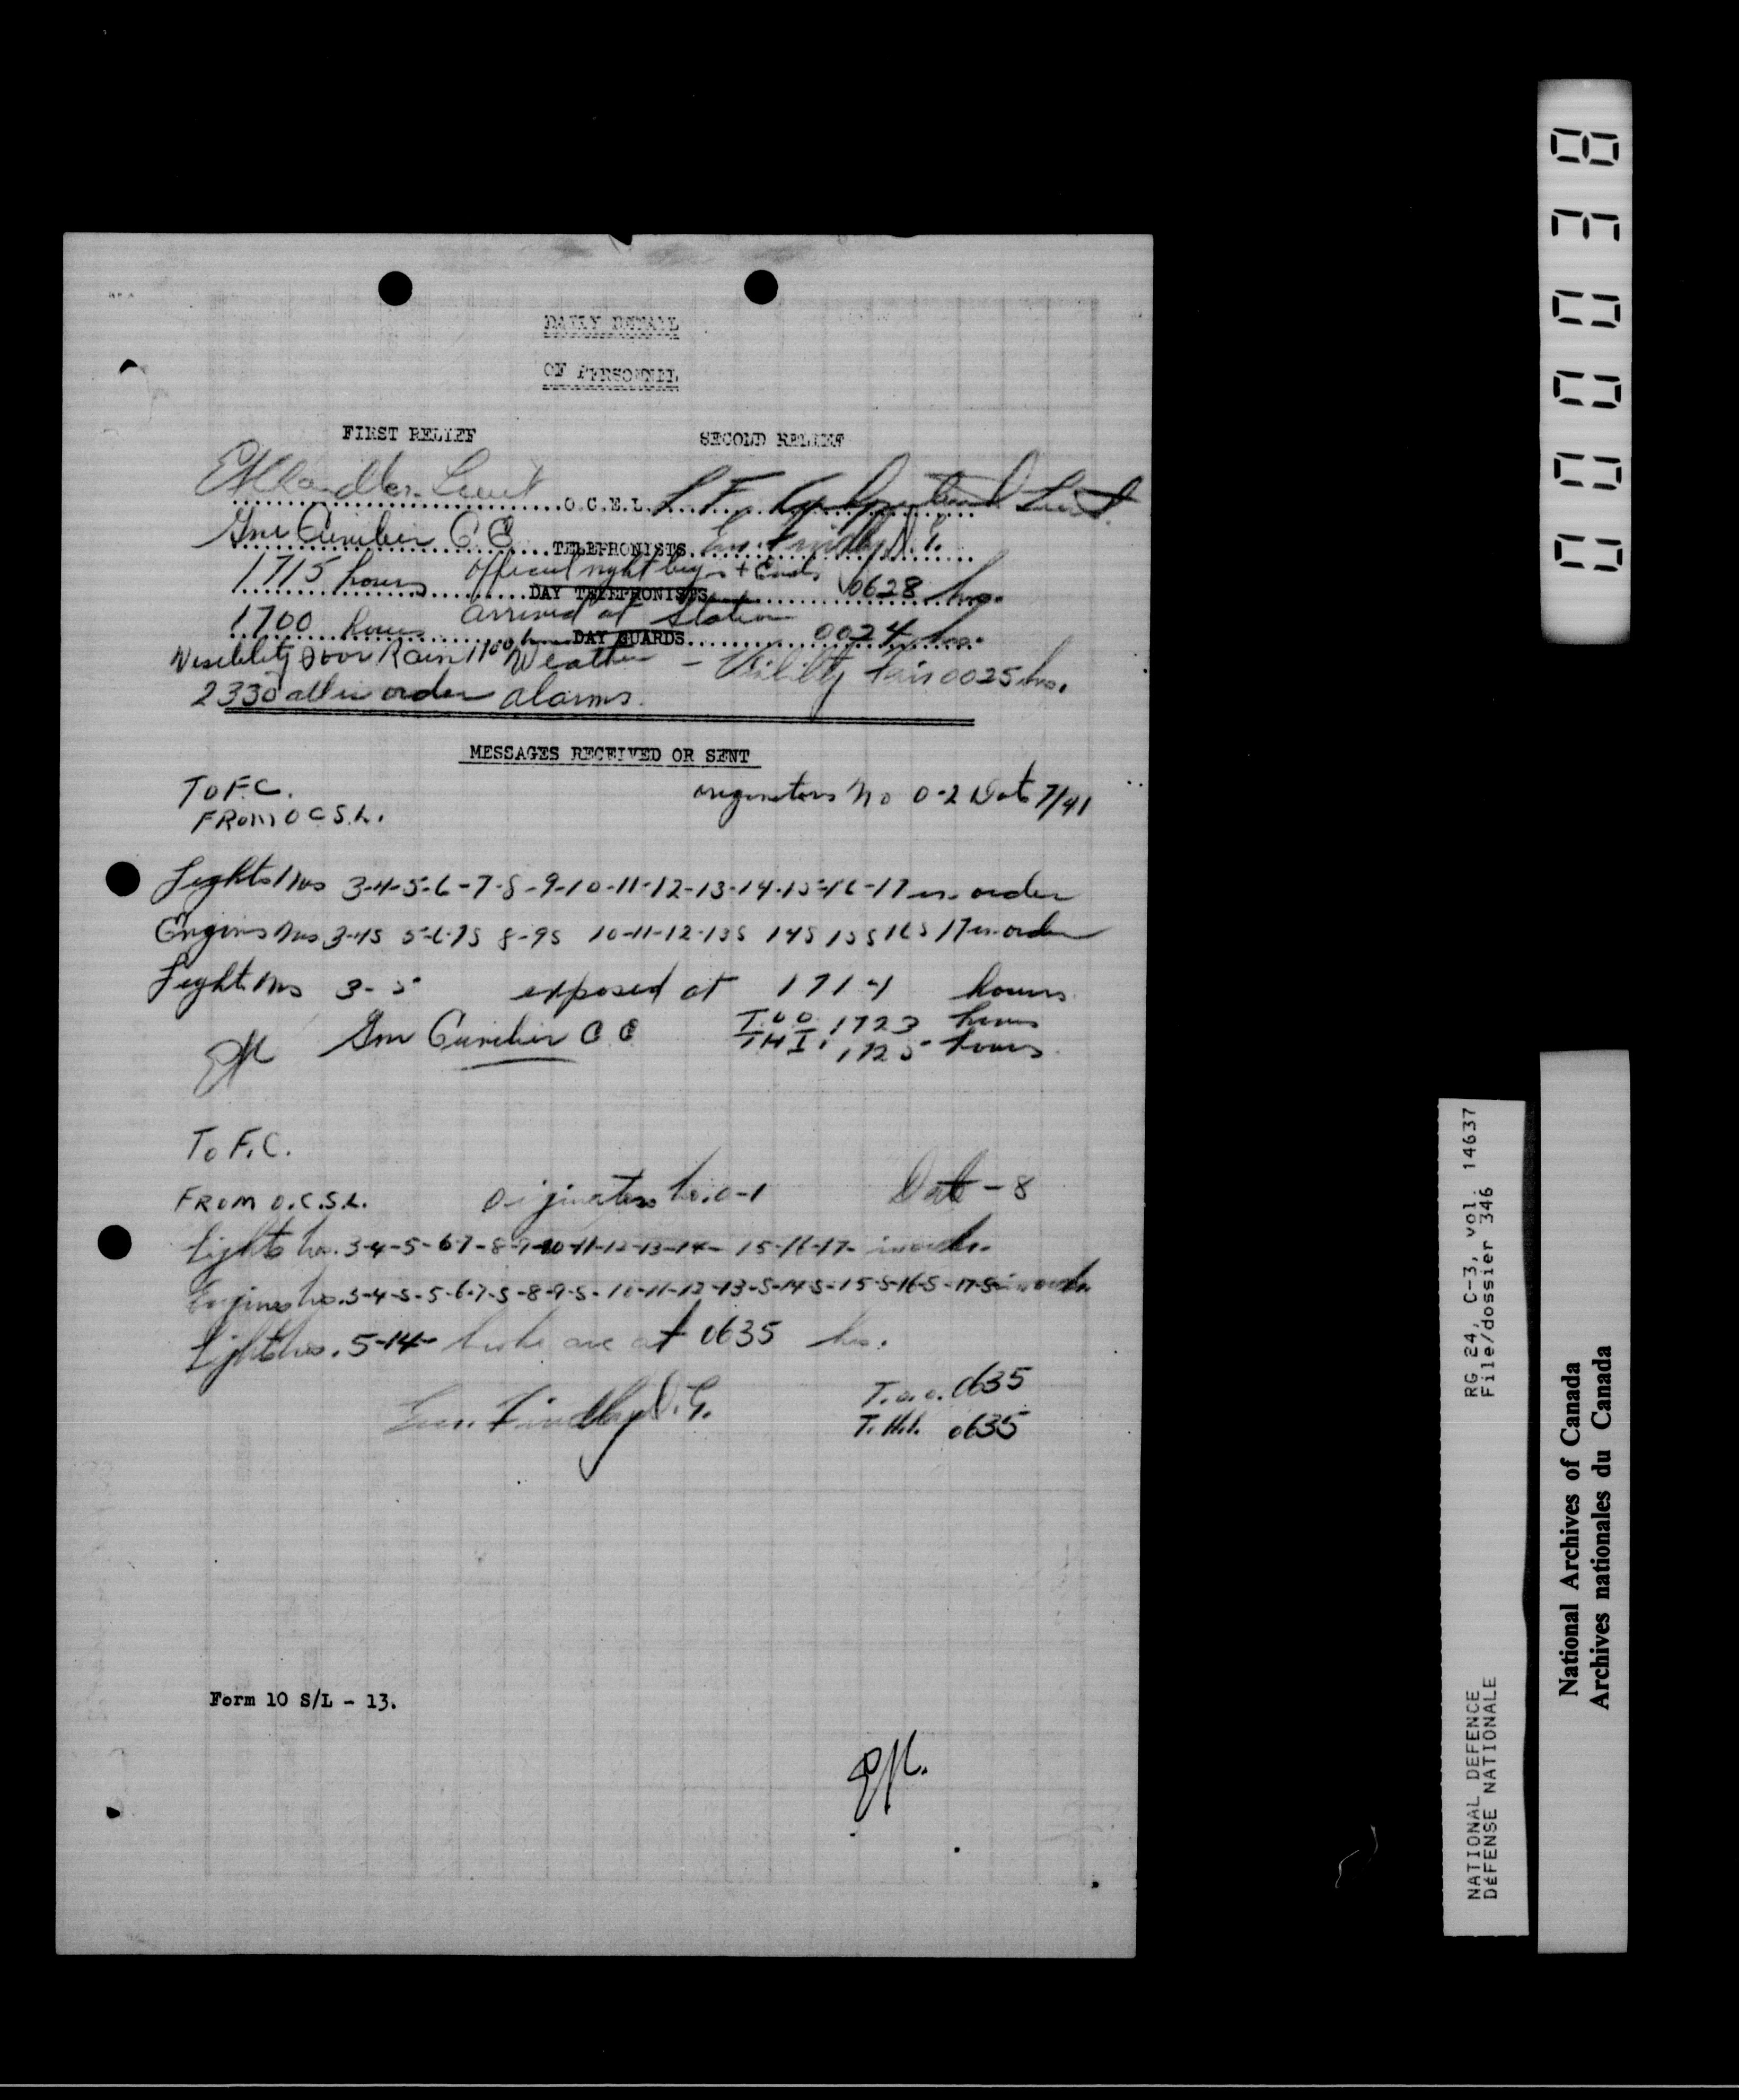 DAILY DETAIL
OF PERSONNEL
FIRST RELIEF SECOND RELIEF
Lieut O.C.E.L. L F Lieut.
Gnr C.C. TELEPHONISTS Gnr. Findlay D.G.
1715 hours Official night begins + Ends 0628 hrs.
DAY TELEPHONISTS
1700 hours arrived at Station 0024 hrs.
DAY GUARDS
Visibility Poor Rain 1700 hrs Weather - Visibility fair 0025 hrs.
2330 all in order alarms.
MESSAGES RECEIVED OR SENT
TO F.C. originators No 0-2 Date 7/41
FROM O C S.L.
Lights Nos 3-4-5-6-7-8-9-10-11-12-13-14-15-16-17 in order
Engines Nos 3-4S 5-6-7S 8-9S 10-11-12-13S 14S 15S 16S 17 in order
Light Nos 3-5 exposed at 1714 hours
Gnr C C T.O.O. 1723 hours
T.H.I. 1725 hours
To F.C.
FROM O.C.S.L. Originators No. 0-1 Date - 8
Lights No. 3-4-5-6-7-8-9-10-11-12-13-14-15-16-17- in order.
Engines No. 3-4-S-5-6-7-S-8-9-S-10-11-12-13-S-14-S-15-S-16-S-17-S in order
Lights No. 5-14- broke arc at 0635 hrs.
Gnr. Findlay D.G. T.o.o. 0635
T.H.I. 0635
Form 10 S/L - 13.
000038
RG 24, C-3, vol. 14637
File/dossier 346
NATIONAL DEFENCE
DÉFENSE NATIONALE
National Archives of Canada
Archives nationales du Canada